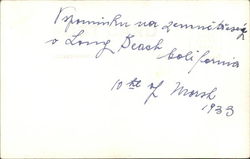 Vspomínku na zemnětřesení
v Long Beach
California
10 the of Marsh
1933